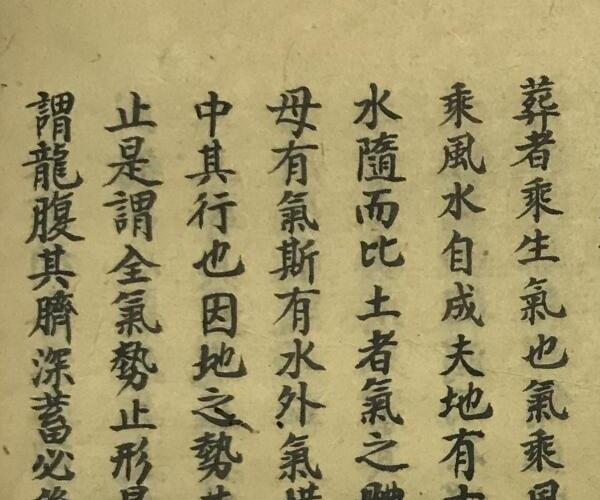 葬者乘生氣也氣乘
乘風水自成夫地有
水隨而比土者氣之
母有氣斯有水外氣
中其行也因地之勢
止是謂全氣勢止形
謂龍腹其臍深蓄必